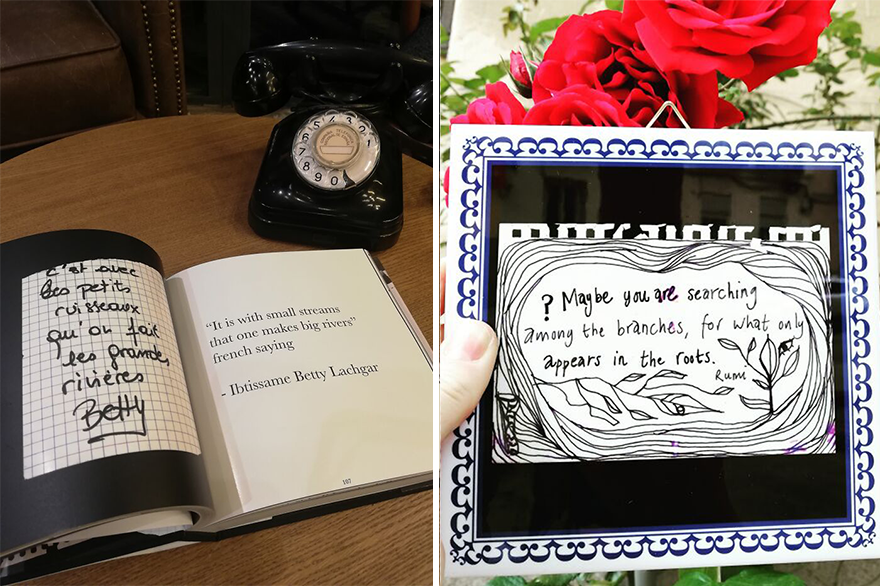 c'est avec
les petits
ruisseaux
qu'on fait
les grandes
rivières
Betty
"It is with small streams
that one makes big rivers"
french saying
- Ibtissame Betty Lachgar
107
? Maybe you are searching
among the branches, for what only
appears in the roots.
Rumi